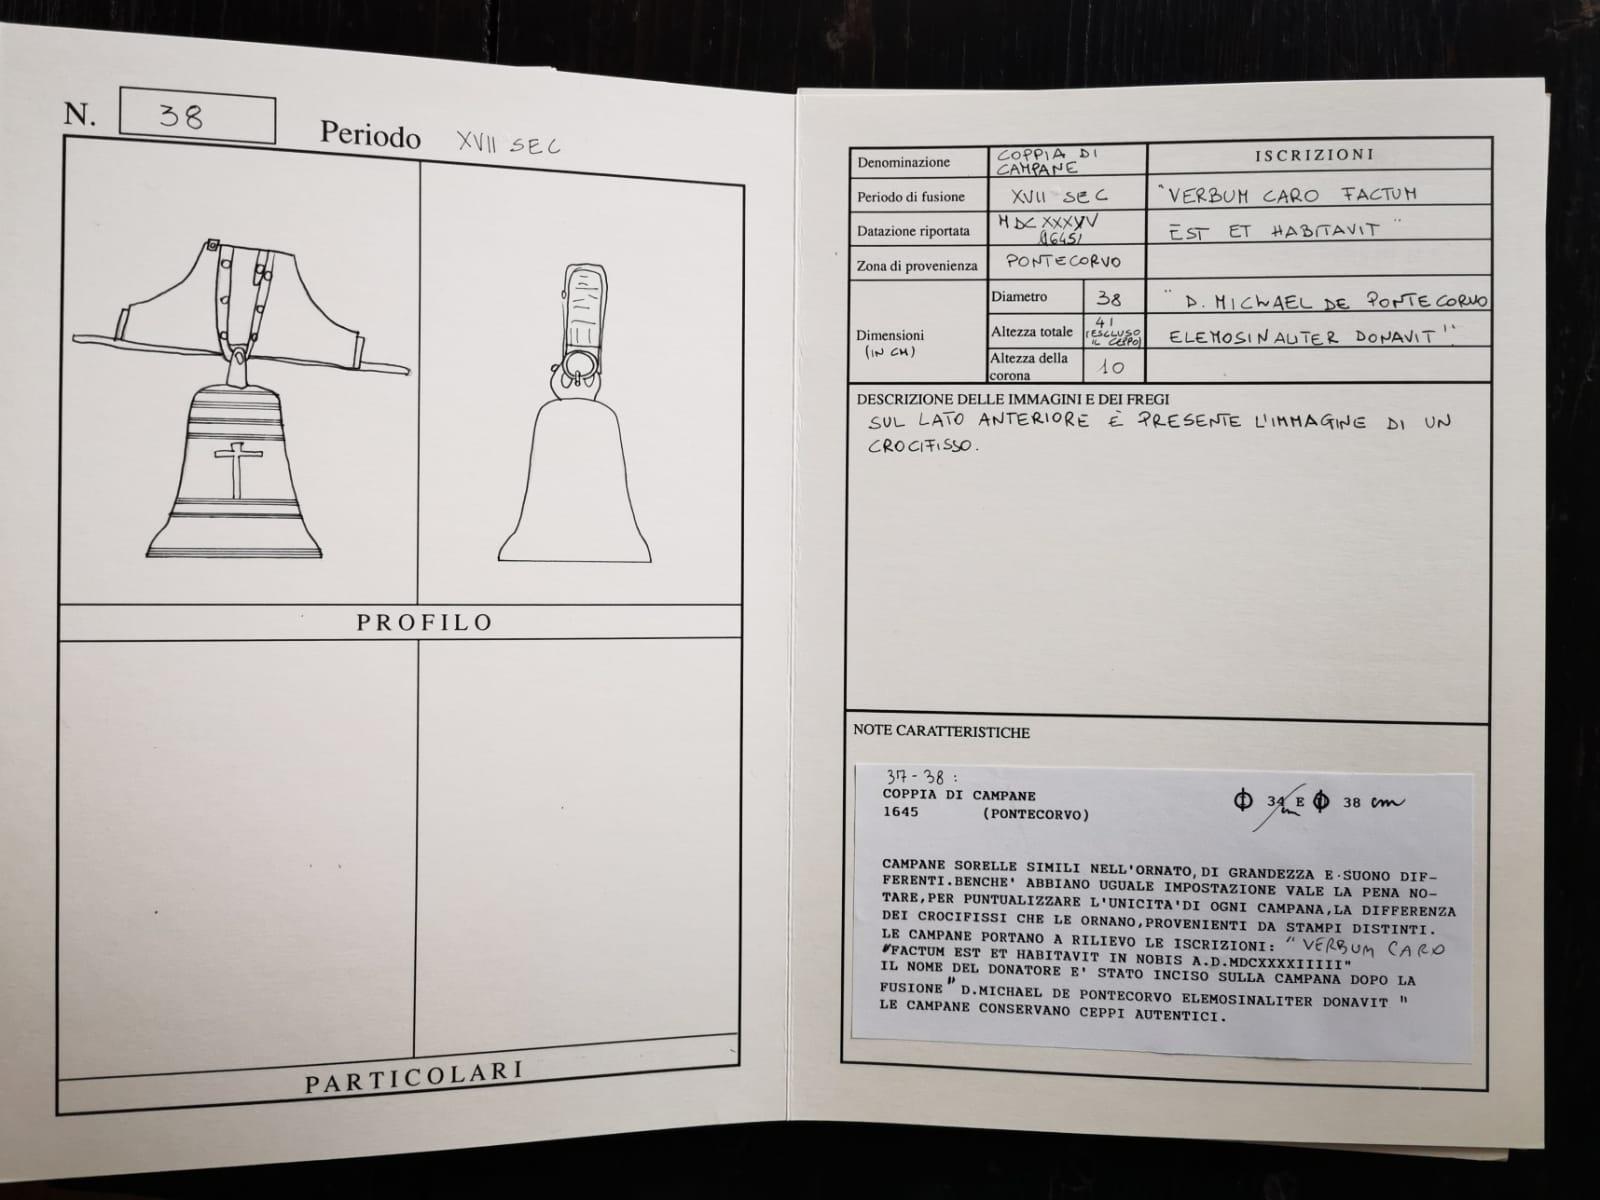 N. 38 Periodo XVII SEC
PROFILO
PARTICOLARI
Denominazione COPPIA DI CAMPANE
Periodo di fusione XVII SEC
Datazione riportata 1645
Zona di provenienza PONTECORVO
Dimensioni (IN CM)
Diametro 38
Altezza totale 41 (ESCLUSO IL CEPPO)
Altezza della corona 10
ISCRIZIONI
"VERBUM CARO FACTUM
EST ET HABITAVIT"
"D. MICHAEL DE PONTECORVO
ELEMOSINALITER DONAVIT"
DESCRIZIONE DELLE IMMAGINI E DEI FREGI
SUL LATO ANTERIORE È PRESENTE L'IMMAGINE DI UN
CROCIFISSO.
NOTE CARATTERISTICHE
37-38:
COPPIA DI CAMPANE Φ 34 cm E Φ 38 cm
1645 (PONTECORVO)
CAMPANE SORELLE SIMILI NELL'ORNATO,DI GRANDEZZA E SUONO DIF-
FERENTI.BENCHE' ABBIANO UGUALE IMPOSTAZIONE VALE LA PENA NO-
TARE,PER PUNTUALIZZARE L'UNICITA'DI OGNI CAMPANA,LA DIFFERENZA
DEI CROCIFISSI CHE LE ORNANO,PROVENIENTI DA STAMPI DISTINTI.
LE CAMPANE PORTANO A RILIEVO LE ISCRIZIONI: "VERBUM CARO
"FACTUM EST ET HABITAVIT IN NOBIS A.D.MDCXXXXIIIII"
IL NOME DEL DONATORE E' STATO INCISO SULLA CAMPANA DOPO LA
FUSIONE "D.MICHAEL DE PONTECORVO ELEMOSINALITER DONAVIT "
LE CAMPANE CONSERVANO CEPPI AUTENTICI.